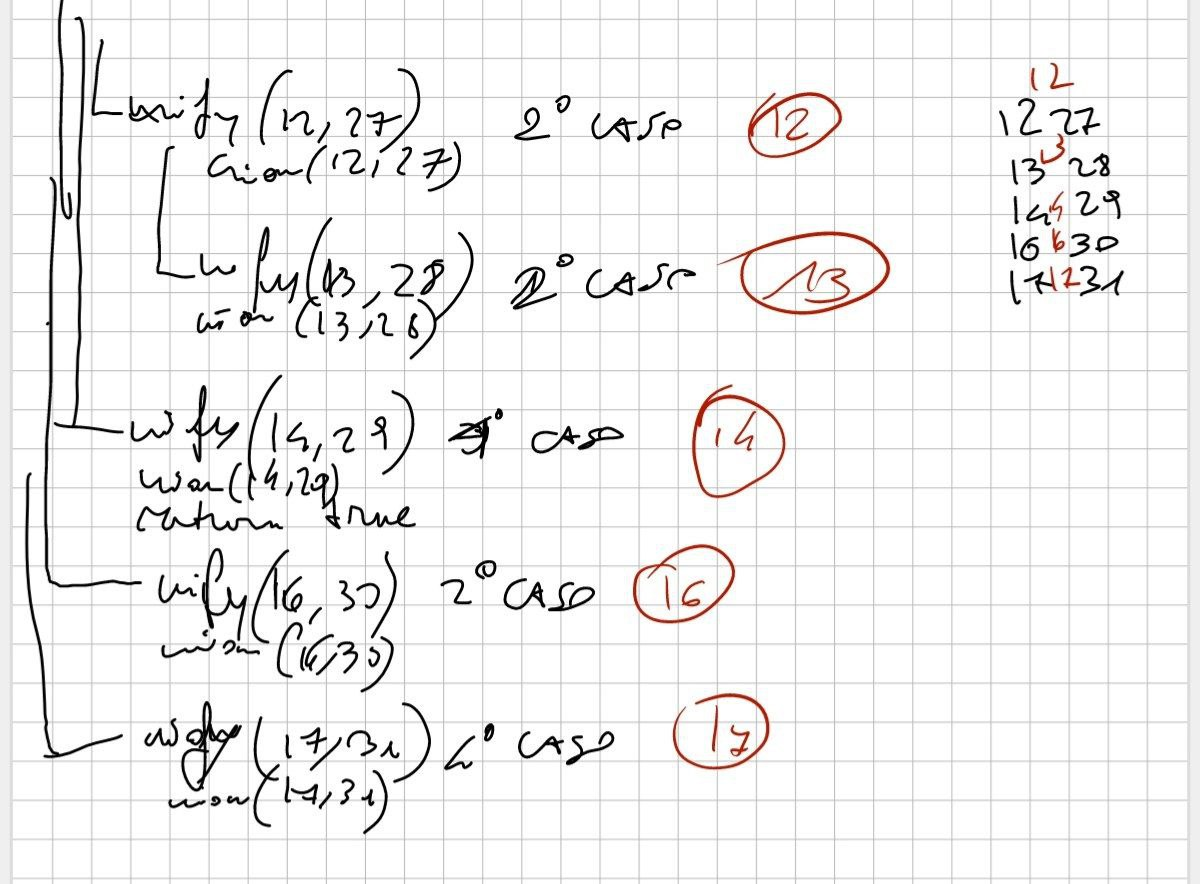 unify (12, 27) 2° CASO 12
union (12, 27)
unify (13, 28) 2° CASO 13
union (13, 28)
unify (14, 29) CASO 14
union (14, 29)
return true
unify (16, 30) 2° CASO 16
union (16, 30)
unify (17, 31) 2° CASO 17
union (17, 31)
12
12 27
13 13 28
14 29
16 30
17 17 31